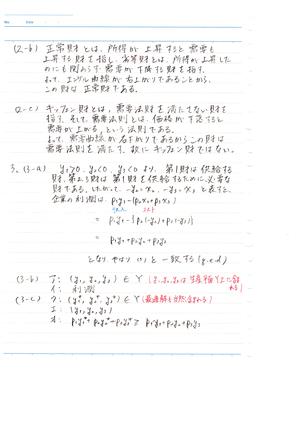 (2-b) 正常財とは、所得が上昇すると需要も
上昇する財を指し、劣等財とは、所得が上昇した
のにも関わらず需要が下降する財を指す。
よって、エンゲル曲線が右上がりであることから、
この財は正常財である。
(2-c) ギッフェン財とは、需要法則を満たさない財を
指す。そして、需要法則とは、価格が下落すると
需要が上がる、という法則である。
よって、需要曲線が右下がりであるからこの財は
需要法則を満たす。故にギッフェン財ではない。
3. (3-a) y₁>0, y₂<0, y₃<0 より、第1財は供給する
財、第2,3財は第1財を供給するために必要な
財である。したがって、-y₂=x₂, -y₃=x₃ と表すと、
企業の利潤は、p₁y₁-(p₂x₂+p₃x₃)
= p₁y₁-{p₂(-y₂)+p₃(-y₃)}
= p₁y₁+p₂y₂+p₃y₃
となり、(1)と一致する (q.e.d)
(3-b) ア: (y₁, y₂, y₃) ∈ Y
イ: 利潤
(3-c) ウ: (y₁*, y₂*, y₃*) ∈ Y
エ: (y₁, y₂, y₃)
オ: p₁y₁*+p₂y₂*+p₃y₃* ≥ p₁y₁+p₂y₂+p₃y₃